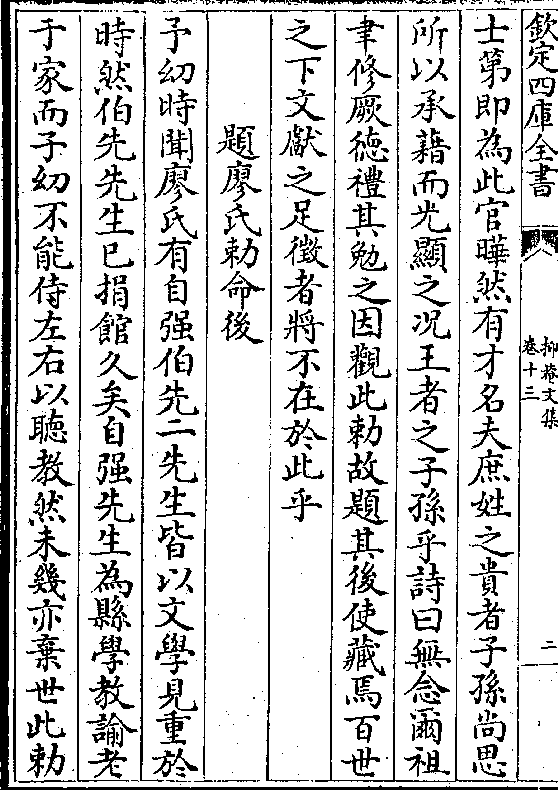 欽定四庫全書
抑菴文集
卷十三
二
士第即為此官曄然有才名夫庶姓之貴者子孫尚思
所以承藉而光顯之况王者之子孫乎詩曰無念爾祖
聿修厥德禮其勉之因觀此勅故題其後使藏焉百世
之下文獻之足徵者將不在於此乎
題廖氏勅命後
予幼時聞廖氏有自强伯先二先生皆以文學見重於
時然伯先先生已捐館久矣自强先生為縣學教諭老
于家而予幼不能侍左右以聽教然未幾亦棄世此勅